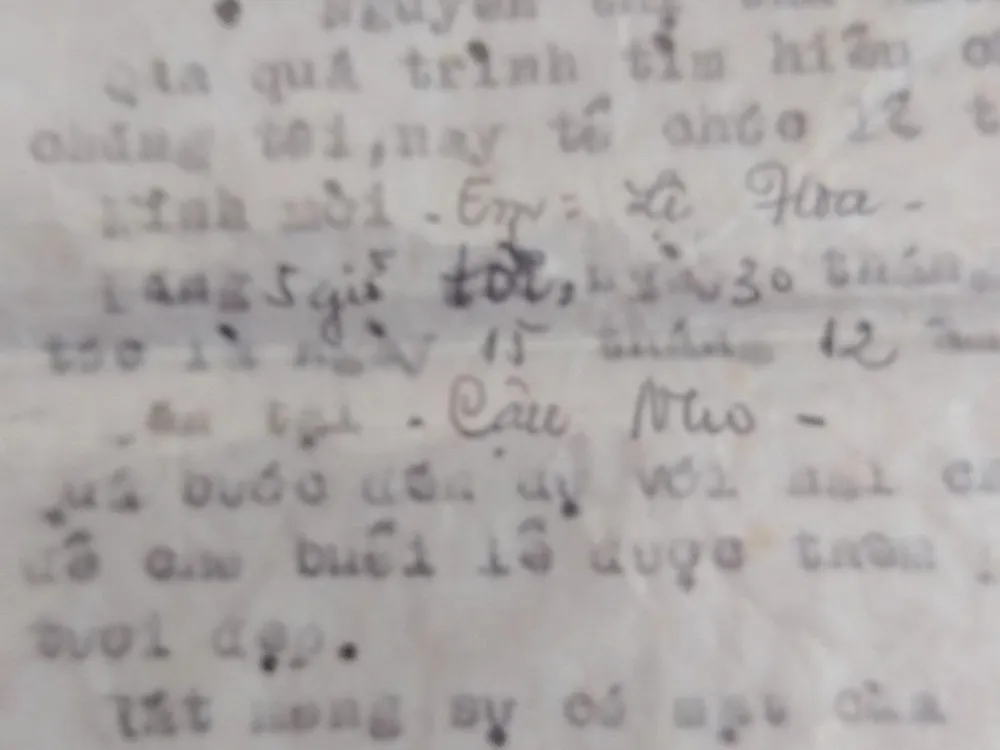 Nguyễn thị
Qua quá trình tìm hiểu
chúng tôi, nay tổ chức lễ
kính mời - Em: Lê Hoa -
5 giờ tối, ngày 30 tháng
tức là ngày 15 tháng 12 âm
tại - Cậu Nho -
quá bước đến dự với hai
để cho buổi lễ được thêm
tươi đẹp.
Rất mong sự có mặt của